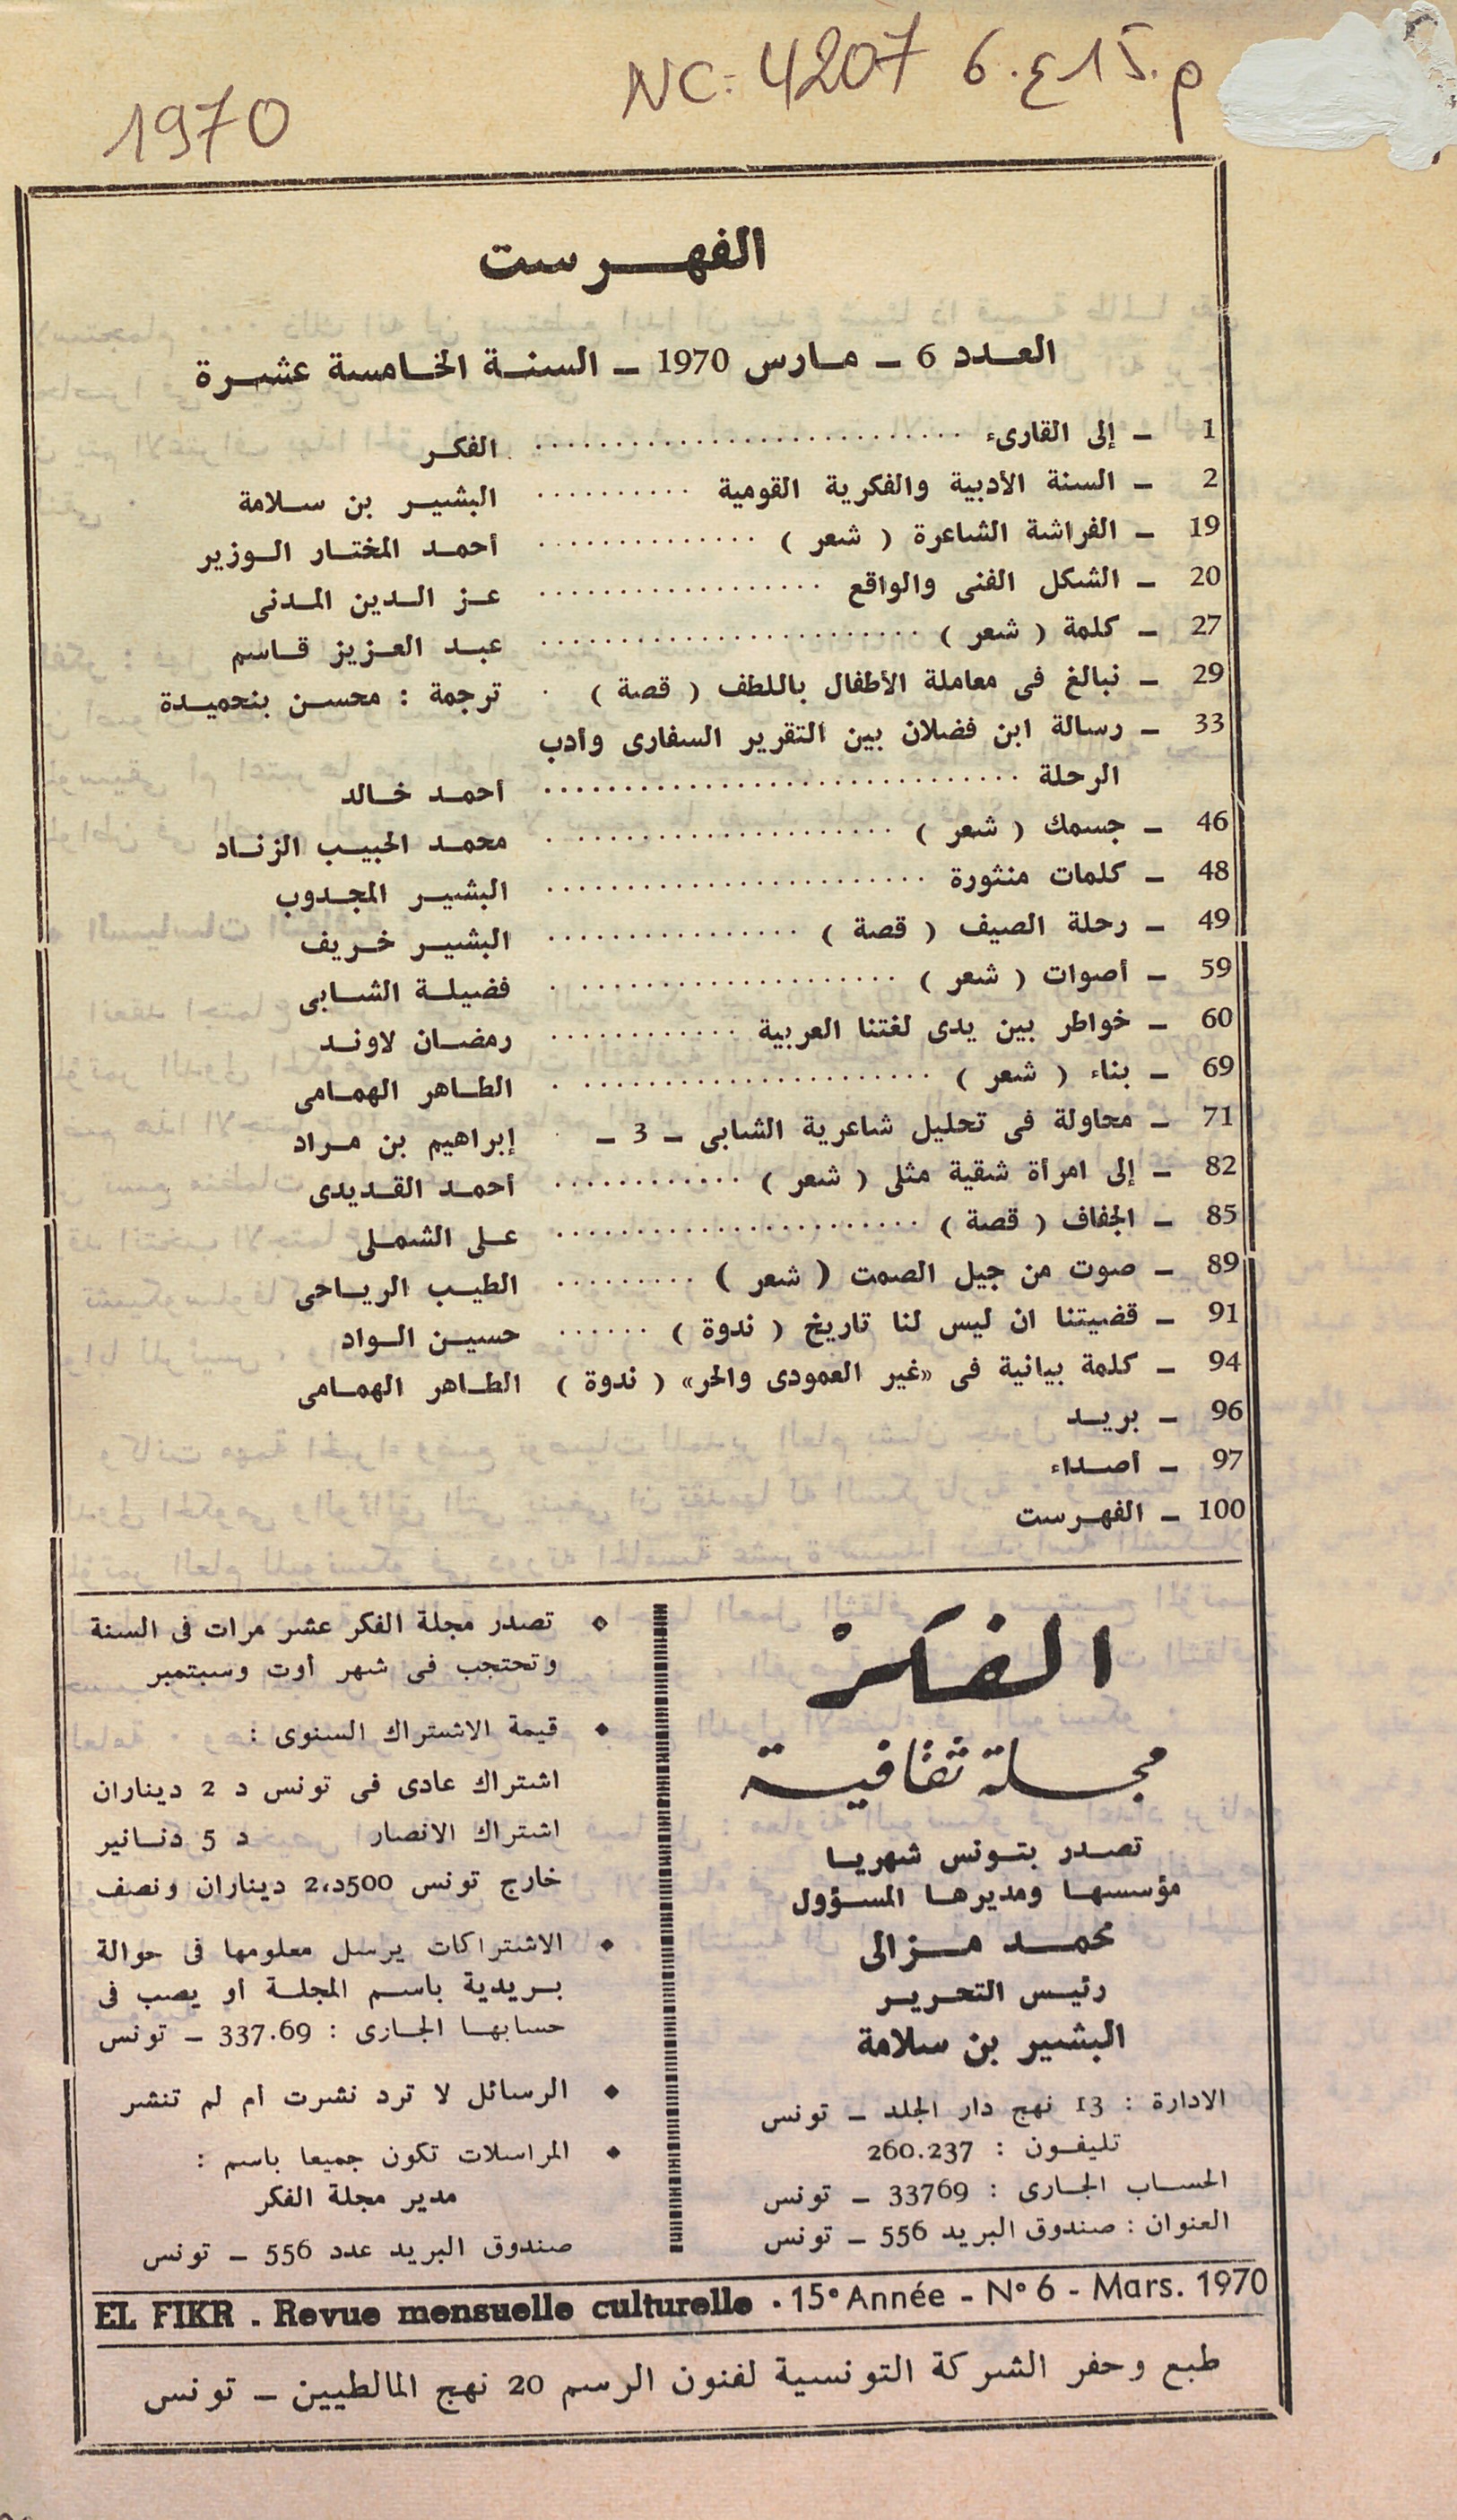 1970
NC: 4207 6.ع 15.م
الفهرست
العدد 6 ـ مارس 1970 ـ السنة الخامسة عشرة
1 ـ إلى القارىء .......................... الفكر
2 ـ السنة الأدبية والفكرية القومية .......... البشير بن سلامة
19 ـ الفراشة الشاعرة ( شعر ) .............. أحمد المختار الوزير
20 ـ الشكل الفنى والواقع .................. عز الدين المدنى
27 ـ كلمة ( شعر ) ........................ عبد العزيز قاسم
29 ـ نبالغ فى معاملة الأطفال باللطف ( قصة ) . ترجمة : محسن بنحميدة
33 ـ رسالة ابن فضلان بين التقرير السفارى وأدب
الرحلة .............................. أحمد خالد
46 ـ جسمك ( شعر ) ...................... محمد الحبيب الزناد
48 ـ كلمات منثورة ........................ البشير المجدوب
49 ـ رحلة الصيف ( قصة ) ................ البشير خريف
59 ـ أصوات ( شعر ) ...................... فضيلة الشابى
60 ـ خواطر بين يدى لغتنا العربية ............ رمضان لاوند
69 ـ بناء ( شعر ) ........................ الطاهر الهمامى
71 ـ محاولة فى تحليل شاعرية الشابى ـ 3 ـ . إبراهيم بن مراد
82 ـ إلى امرأة شقية مثلى ( شعر ) ............ أحمد القديدى
85 ـ الجفاف ( قصة ) ....................... على الشملى
89 ـ صوت من جيل الصمت ( شعر ) ......... الطيب الرياحى
91 ـ قضيتنا ان ليس لنا تاريخ ( ندوة ) ...... حسين الواد
94 ـ كلمة بيانية فى «غير العمودى والحر» ( ندوة ) الطاهر الهمامى
96 ـ بريد
97 ـ أصداء
100 ـ الفهرست
الفكر
مجلة ثقافية
تصدر بتونس شهريا
مؤسسها ومديرها المسؤول
محمد مزالى
رئيس التحرير
البشير بن سلامة
الادارة : 13 نهج دار الجلد ـ تونس
تليفون : 260.237
الحساب الجارى : 33769 ـ تونس
العنوان : صندوق البريد 556 ـ تونس
◆ تصدر مجلة الفكر عشر مرات فى السنة
وتحتجب فى شهر أوت وسبتمبر
◆ قيمة الاشتراك السنوى :
اشتراك عادى فى تونس د 2 ديناران
اشتراك الانصار د 5 دنانير
خارج تونس 500د،2 ديناران ونصف
◆ الاشتراكات يرسل معلومها فى حوالة
بريدية باسم المجلة أو يصب فى
حسابها الجارى : 337.69 ـ تونس
◆ الرسائل لا ترد نشرت ام لم تنشر
◆ المراسلات تكون جميعا باسم :
مدير مجلة الفكر
صندوق البريد عدد 556 ـ تونس
EL FIKR . Revue mensuelle culturelle . 15° Année - N° 6 - Mars. 1970
طبع وحفر الشركة التونسية لفنون الرسم 20 نهج المالطيين ـ تونس